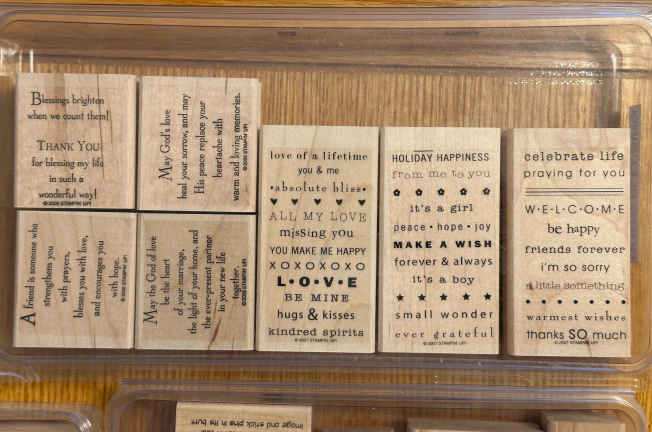 Blessings brighten
when we count them!
THANK YOU
for blessing my life
in such a
wonderful way!
© 2005 STAMPIN' UP!
May God's love
heal your sorrow, and may
His peace replace your
heartache with
warm and living memories.
© 2005 STAMPIN' UP!
A friend is someone who
strengthens you
with prayers,
blesses you with love,
and encourages you
with hope.
© 2005 STAMPIN' UP!
May the God of love
be the heart
of your marriage,
the light of your home, and
the ever-present partner
in your new life
together.
© 2005 STAMPIN' UP!
love of a lifetime
you & me
•absolute bliss•
♥ ♥ ♥ ♥ ♥
ALL MY LOVE
missing you
YOU MAKE ME HAPPY
XOXOXOXO
L•O•V•E
BE MINE
hugs & kisses
kindred spirits
© 2007 STAMPIN' UP!
HOLIDAY HAPPINESS
from me to you
it's a girl
peace • hope • joy
MAKE A WISH
forever & always
it's a boy
★ ★ ★ ★ ★
small wonder
ever grateful
© 2007 STAMPIN' UP!
celebrate life
praying for you
W•E•L•C•O•M•E
be happy
friends forever
i'm so sorry
a little something
• • • • • • • • •
warmest wishes
thanks SO much
© 2007 STAMPIN' UP!
image and stick pins in its butt